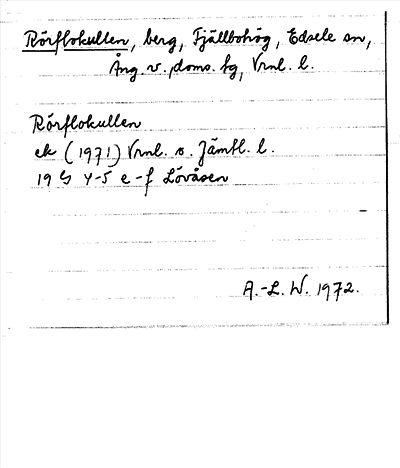 Rörflokullen, berg, Fjällbohög, Edsele sn,
Ång. v. doms. fg, Vrnl. l.
Rörflokullen
ek (1971) Vrnl. o. Jämtl. l.
19 G 4-5 e-f Lövåsen
A.-L. W. 1972.